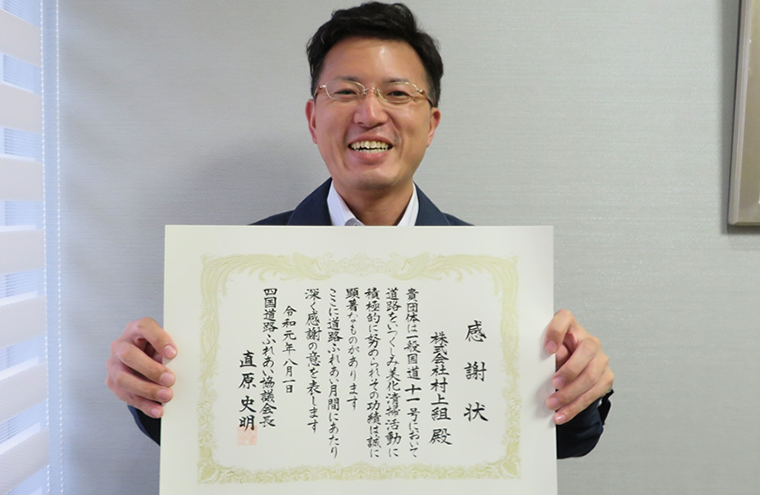 感謝状
株式会社村上組 殿
貴団体は一般国道十一号において
道路をいつくしみ美化清掃活動に
積極的に努められその功績は誠に
顕著なものがあります
ここに道路ふれあい月間にあたり
深く感謝の意を表します
令和元年八月一日
四国道路ふれあい協議会長
直原史明